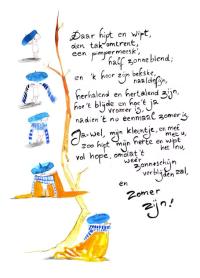 Daar hipt en wipt,
den tak omtrent,
een pimpermeesk',
half zonneblend;
en 'k hoor zijn bekske,
naaldefijn,
herhalend en hertalend zijn,
hoe 't blijde en hoe 't ja
vromer is,
nadien 't nu eenmaal zomer is
Ja-wel, mijn kleentje, en met
en met u,
zoo hipt mijn herte en wipt
het nu,
vol hope, omdat 't
weer
zonneschijn
verblijden zal,
en
zomer
zijn!